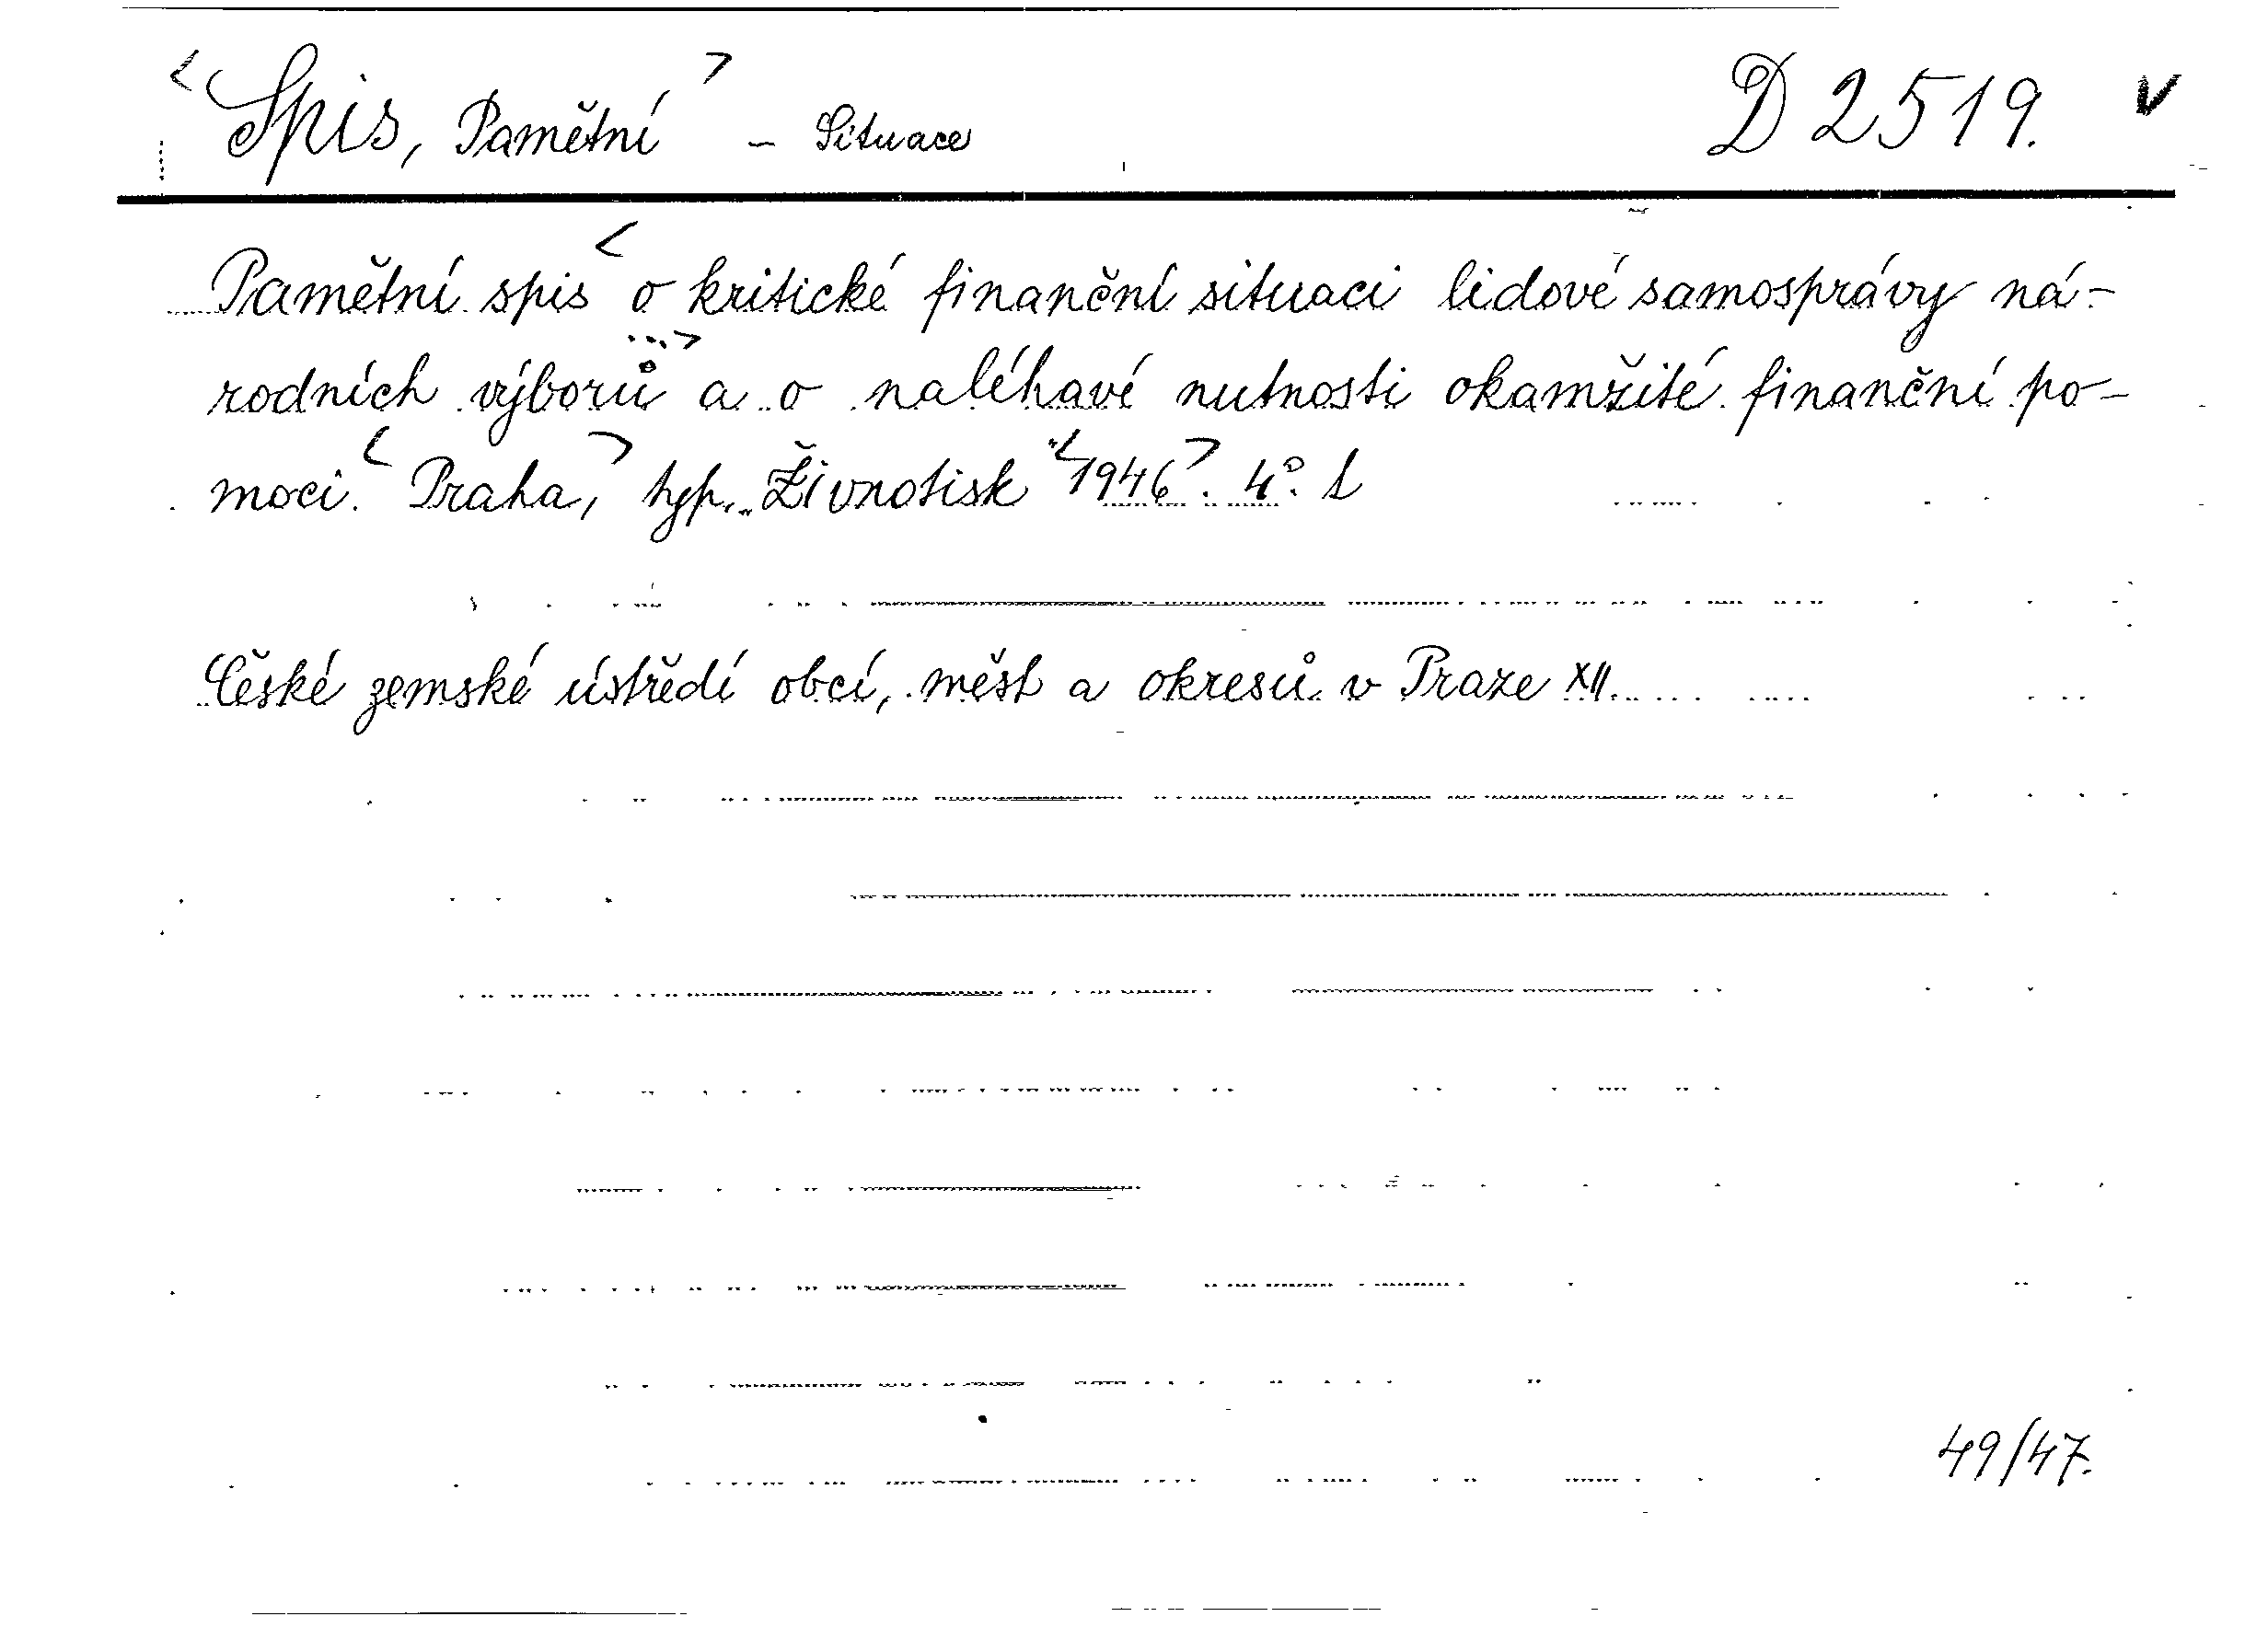 <Spis, Pamětní> - Situace D 2519. v
Pamětní spis <o kritické finanční situaci lidové samosprávy ná-
rodních výborů ...> a o naléhavé nutnosti okamžité finanční po-
moci. <Praha,> typ. Živnotisk <1946>. 4°.
České zemské ústředí obcí, měst a okresů v Praze XII.
49/47.